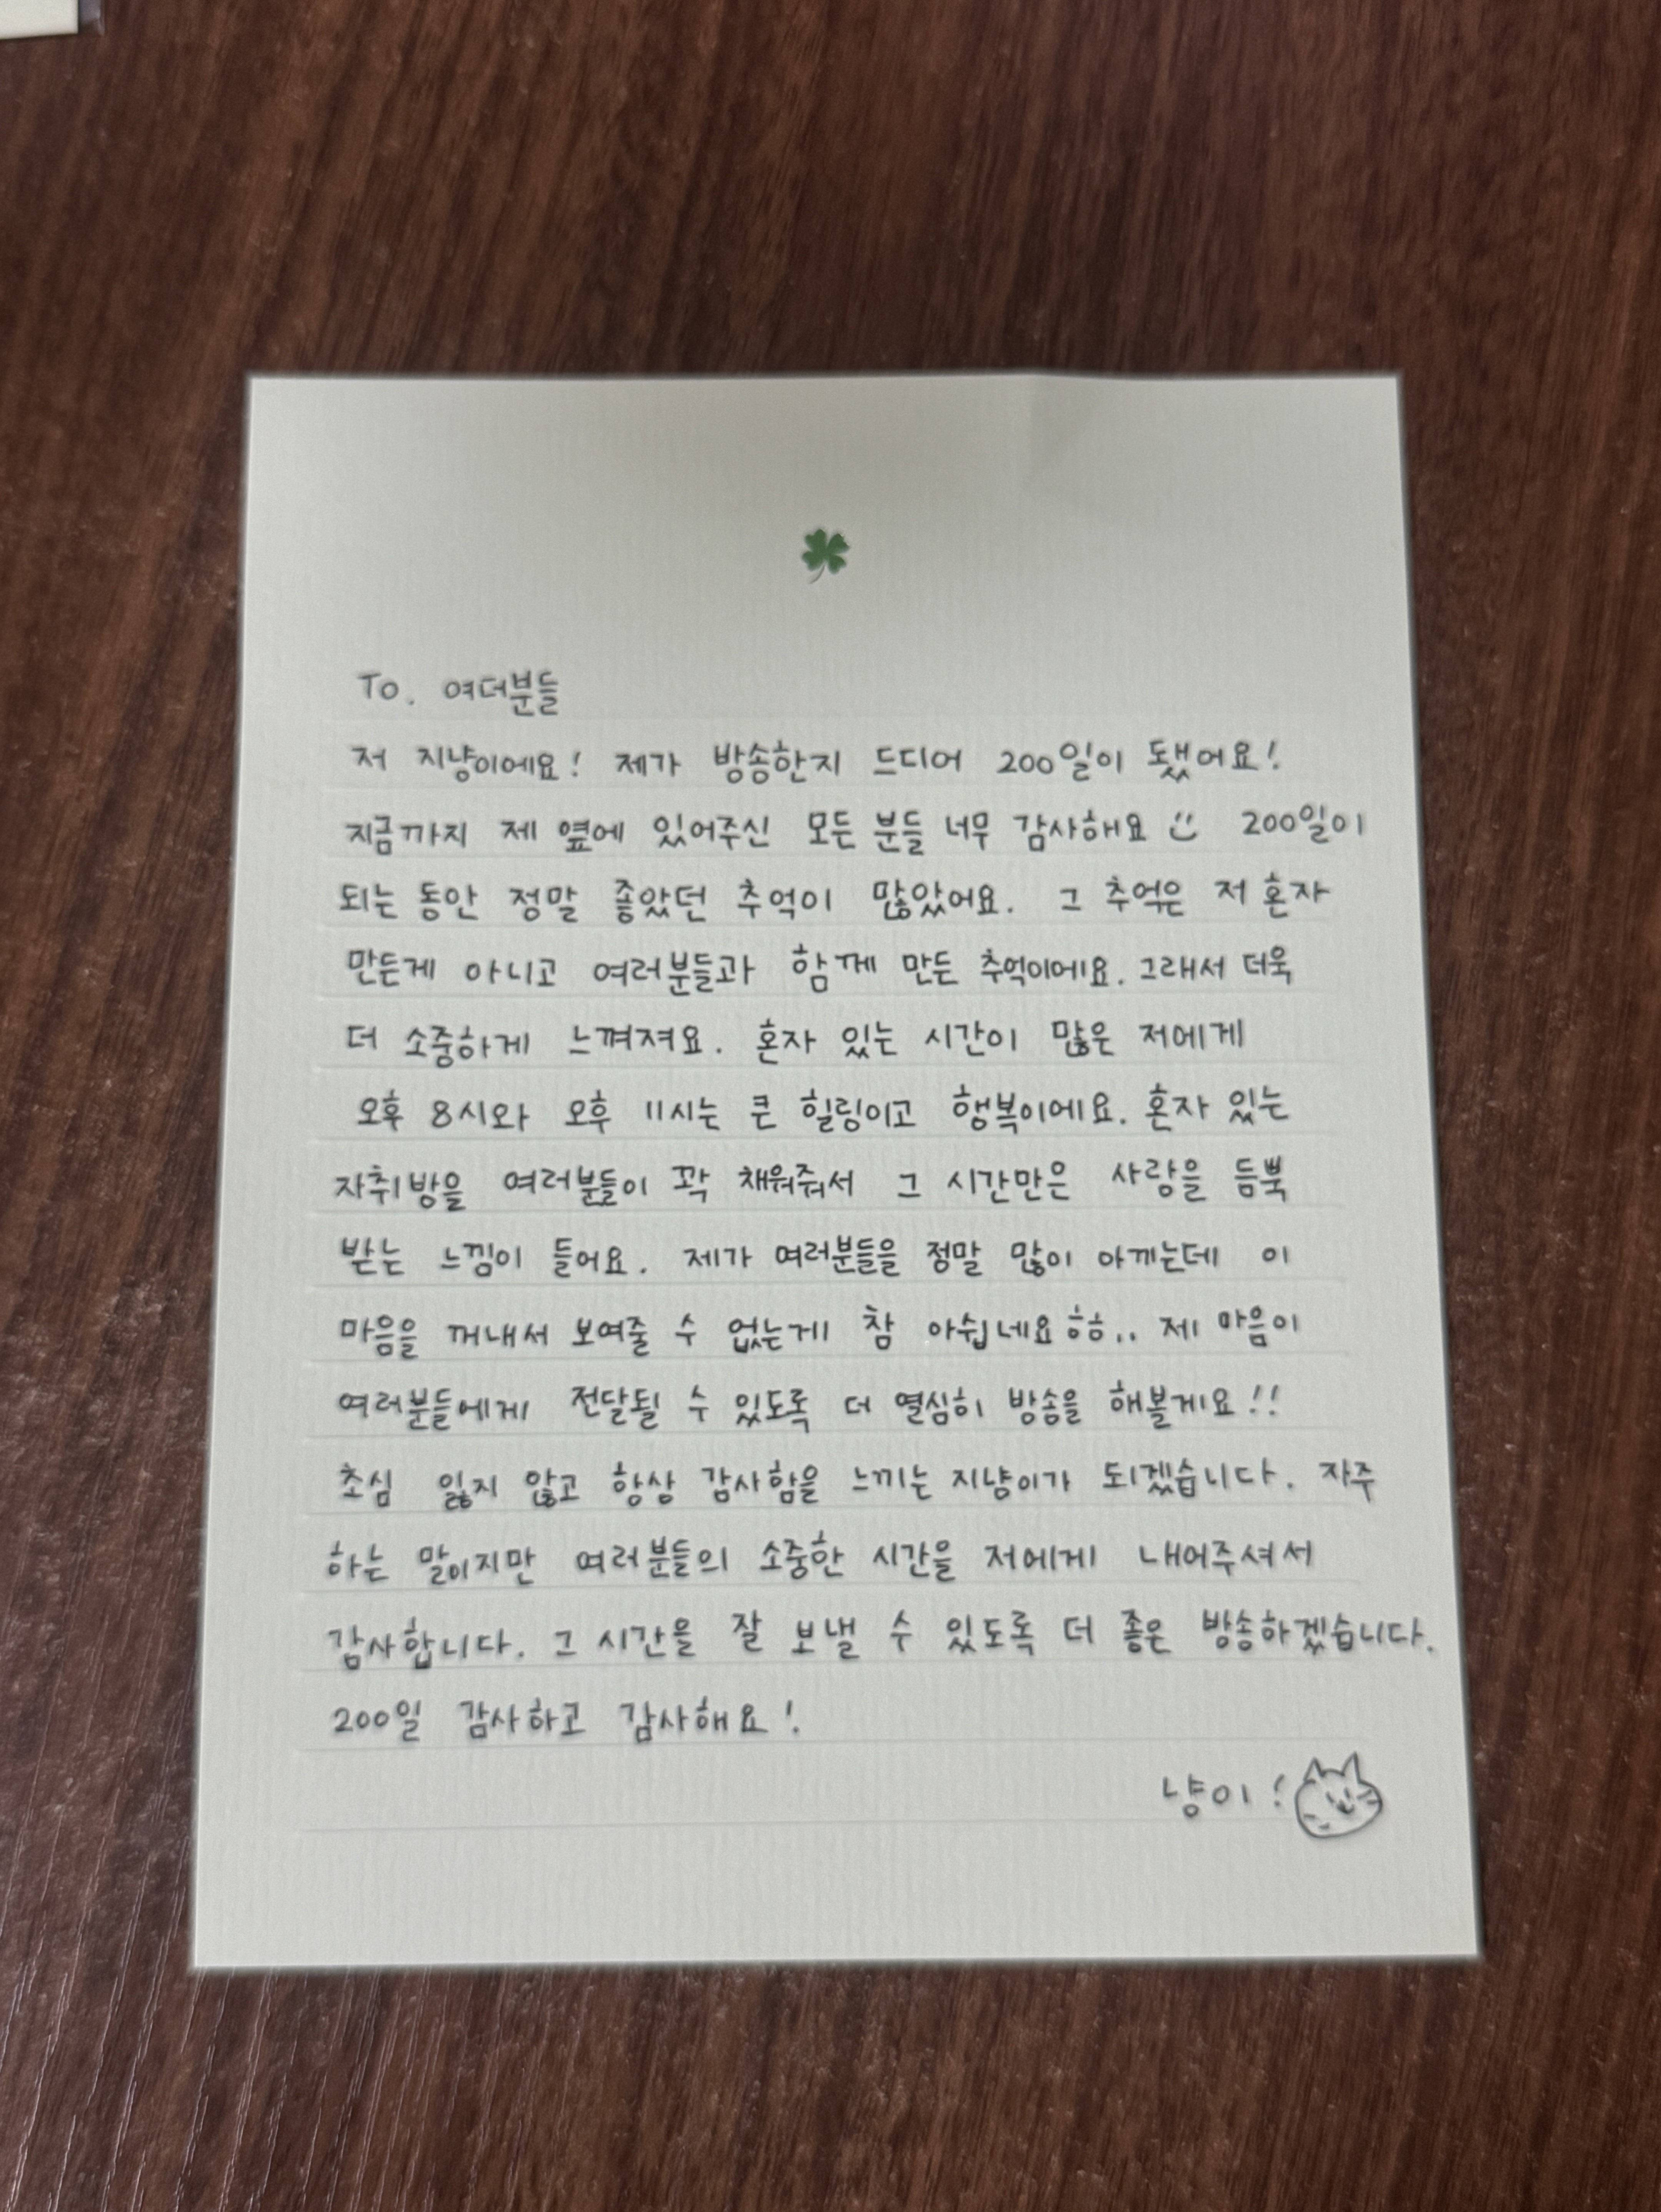 To. 여더분들
저 지냥이에요! 제가 방송한지 드디어 200일이 됐어요!
지금까지 제 옆에 있어주신 모든 분들 너무 감사해요 200일이
되는 동안 정말 좋았던 추억이 많았어요. 그 추억은 저 혼자
만든게 아니고 여러분들과 함께 만든 추억이에요. 그래서 더욱
더 소중하게 느껴져요. 혼자 있는 시간이 많은 저에게
오후 8시와 오후 11시는 큰 힐링이고 행복이에요. 혼자 있는
자취방을 여러분들이 꽉 채워줘서 그 시간만은 사랑을 듬뿍
받는 느낌이 들어요. 제가 여러분들을 정말 많이 아끼는데 이
마음을 꺼내서 보여줄 수 없는게 참 아쉽네요 ㅎㅎ.. 제 마음이
여러분들에게 전달될 수 있도록 더 열심히 방송을 해볼게요!!
초심 잃지 않고 항상 감사함을 느끼는 지냥이가 되겠습니다. 자주
하는 말이지만 여러분들의 소중한 시간을 저에게 내어주셔서
감사합니다. 그 시간을 잘 보낼 수 있도록 더 좋은 방송하겠습니다.
200일 감사하고 감사해요!
냥이!